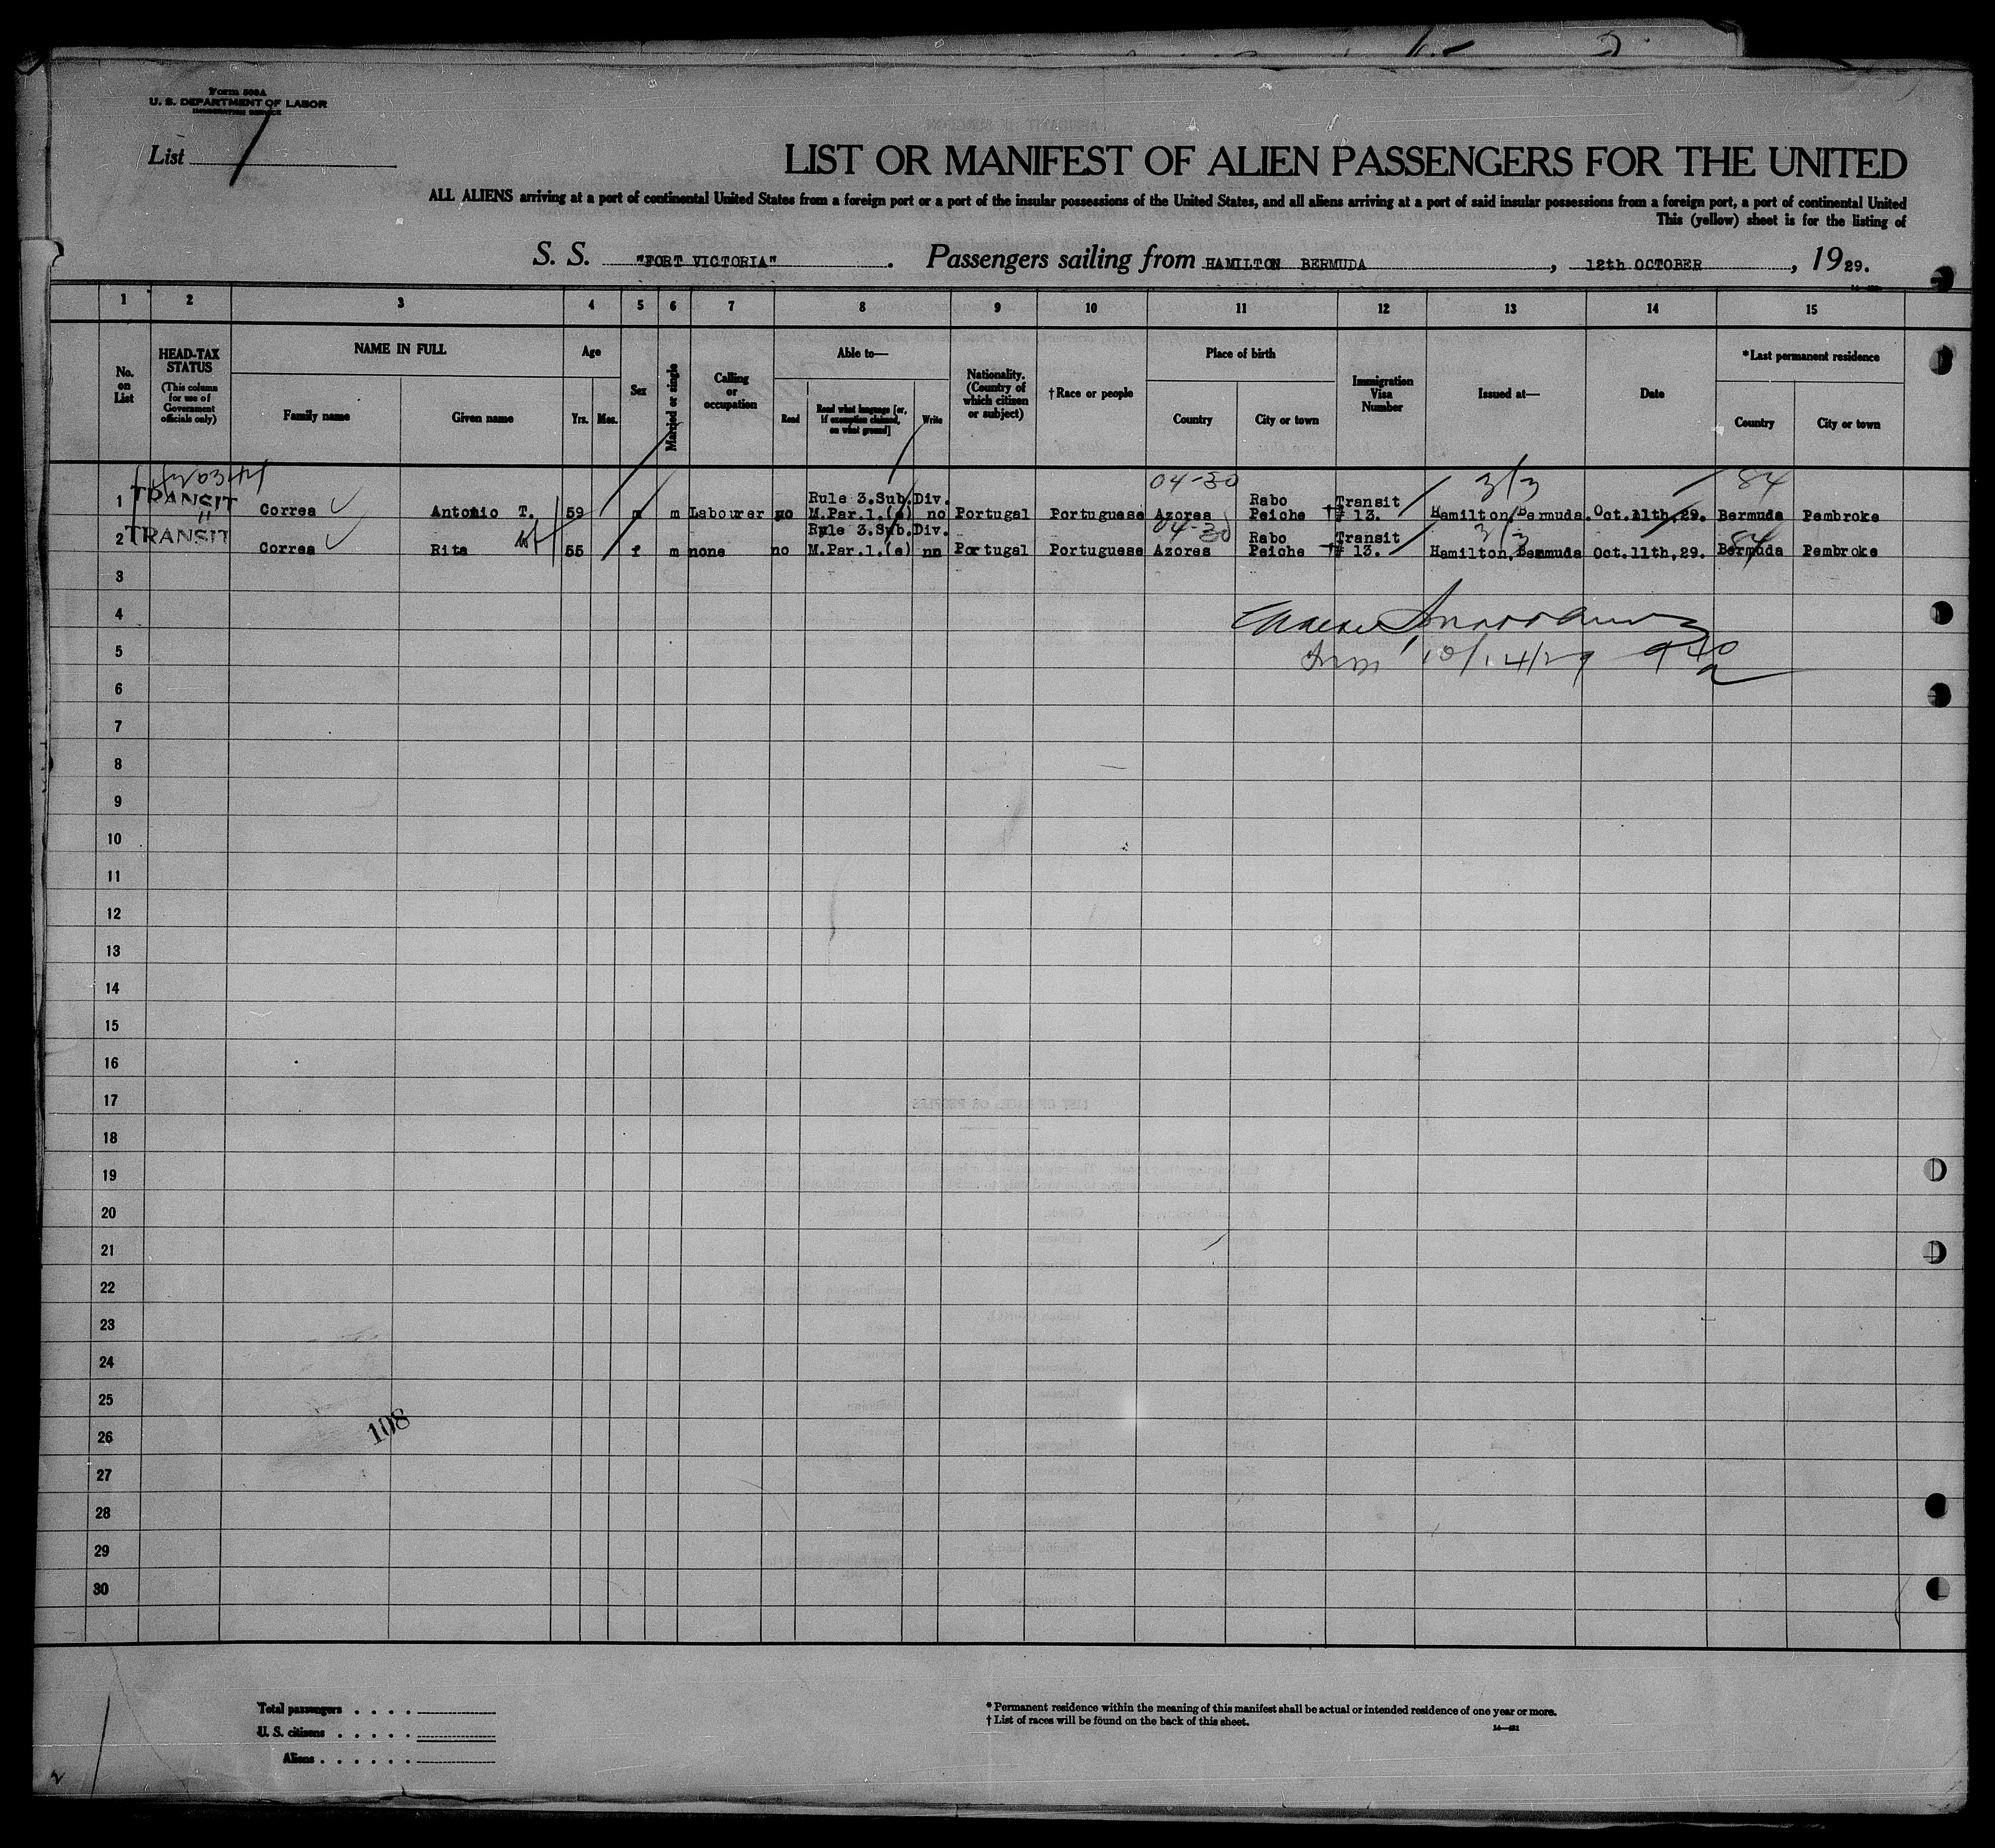 Form 500A
U. S. DEPARTMENT OF LABOR
IMMIGRATION SERVICE
List 1
LIST OR MANIFEST OF ALIEN PASSENGERS FOR THE UNITED
ALL ALIENS arriving at a port of continental United States from a foreign port or a port of the insular possessions of the United States, and all aliens arriving at a port of said insular possessions from a foreign port, a port of continental United
This (yellow) sheet is for the listing of
S. S. "FORT VICTORIA". Passengers sailing from HAMILTON BERMUDA, 12th OCTOBER, 1929.
1 2 3 4 5 6 7 8 9 10 11 12 13 14 15
No. on List
HEAD-TAX STATUS (This column for use of Government officials only)
NAME IN FULL
Family name
Given name
Age
Yrs.
Mos.
Sex
Married or single
Calling or occupation
Able to—
Read
Read what language [or, if exemption claimed, on what ground]
Write
Nationality. (Country of which citizen or subject)
†Race or people
Place of birth
Country
City or town
Immigration Visa Number
Issued at—
Date
*Last permanent residence
Country
City or town
04-30 3/3 84
1 TRANSIT Correa Antonio T. 59 m m Labourer no Rule 3.Sub.Div. M.Par.1.(e) no Portugal Portuguese Azores Rabo Peiche Transit # 13. Hamilton,Bermuda. Oct.11th,29. Bermuda Pembroke
04-30 3/3 84
2 TRANSIT Correa Rita 55 f m none no Rule 3.Sub.Div. M.Par.1.(e) no Portugal Portuguese Azores Rabo Peiche Transit # 13. Hamilton,Bermuda Oct.11th,29. Bermuda Pembroke
3
4
5 10/14/29 940
6
7
8
9
10
11
12
13
14
15
16
17
18
19
20
21
22
23
24
25
108
26
27
28
29
30
Total passengers . . . .
U. S. citizens . . . . .
Aliens . . . . . .
* Permanent residence within the meaning of this manifest shall be actual or intended residence of one year or more.
† List of races will be found on the back of this sheet.